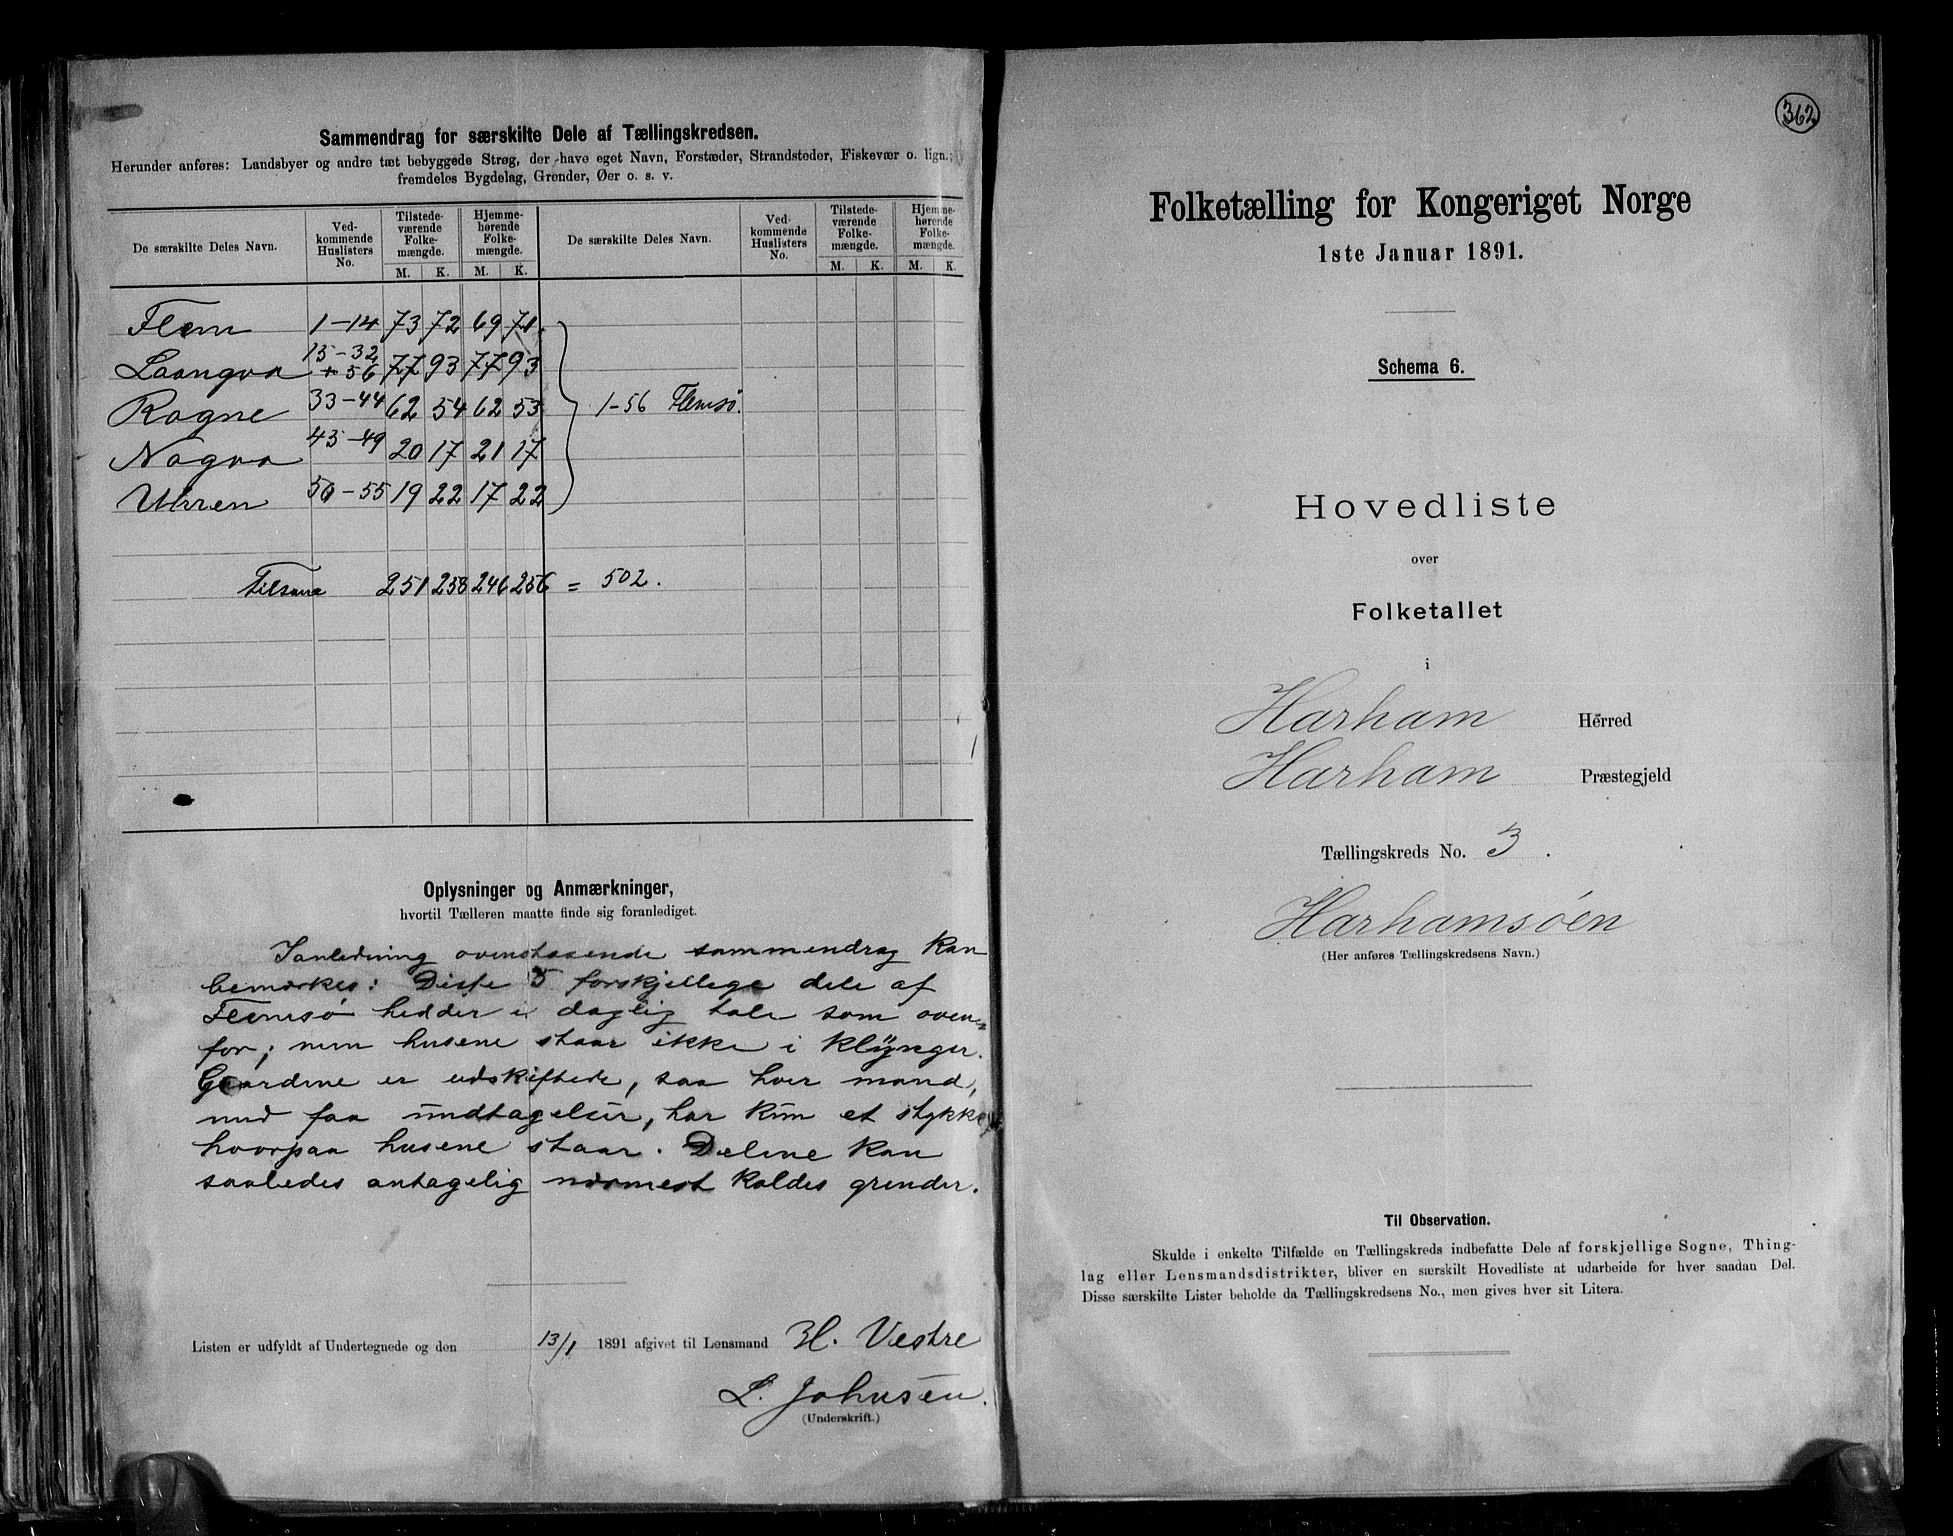 Sammendrag for særskilte Dele af Tællingskredsen.
Herunder anføres: Landsbyer og andre tæt bebyggede Strøg, der have eget Navn, Forstæder, Strandsteder, Fiskevær o. lign.;
fremdeles Bygdelag, Grender, Øer o. s. v.
De særskilte Deles Navn. Ved-kommende Huslisters No. Tilstede-værende Folke-mængde. M. K. Hjemme-hørende Folke-mængde. M. K. De særskilte Deles Navn. Ved-kommende Huslisters No. Tilstede-værende Folke-mængde. M. K. Hjemme-hørende Folke-mængde. M. K.
Flem 1-14 73 72 69 71
Laangva 15-32 + 56 77 93 77 93
Rogne 33-44 62 54 62 53 1-56 Flemsø.
Nogva 45-49 20 17 21 17
Uhren 50-55 19 22 17 22
Tilsame 251 258 246 256 = 502.
Oplysninger og Anmærkninger,
hvortil Tælleren maatte finde sig foranlediget.
Ianledning ovenstaaende sammendrag kan
bemærkes: Disse 5 forskjellige dele af
Flemsø hedder i daglig tale som oven-
for; men husene staar ikke i klynger.
Gaardene er udskiftede, saa hver mand,
med faa undtagelser, har kun et stykke,
hvorpaa husene staar. Delene kan
saaledes antagelig nærmest kaldes grender.
Listen er udfyldt af Undertegnede og den 13/1 1891 afgivet til Lensmand H. Vestre
L. Johnsen.
(Underskrift.)
362
Folketælling for Kongeriget Norge
1ste Januar 1891.
Schema 6.
Hovedliste
over
Folketallet
i
Harham Herred
Harham Præstegjeld
Tællingskreds No. 3.
Harhamsøen
(Her anføres Tællingskredsens Navn.)
Til Observation.
Skulde i enkelte Tilfælde en Tællingskreds indbefatte Dele af forskjellige Sogne, Thing-
lag eller Lensmandsdistrikter, bliver en særskilt Hovedliste at udarbeide for hver saadan Del.
Disse særskilte Lister beholde da Tællingskredsens No., men gives hver sit Litera.